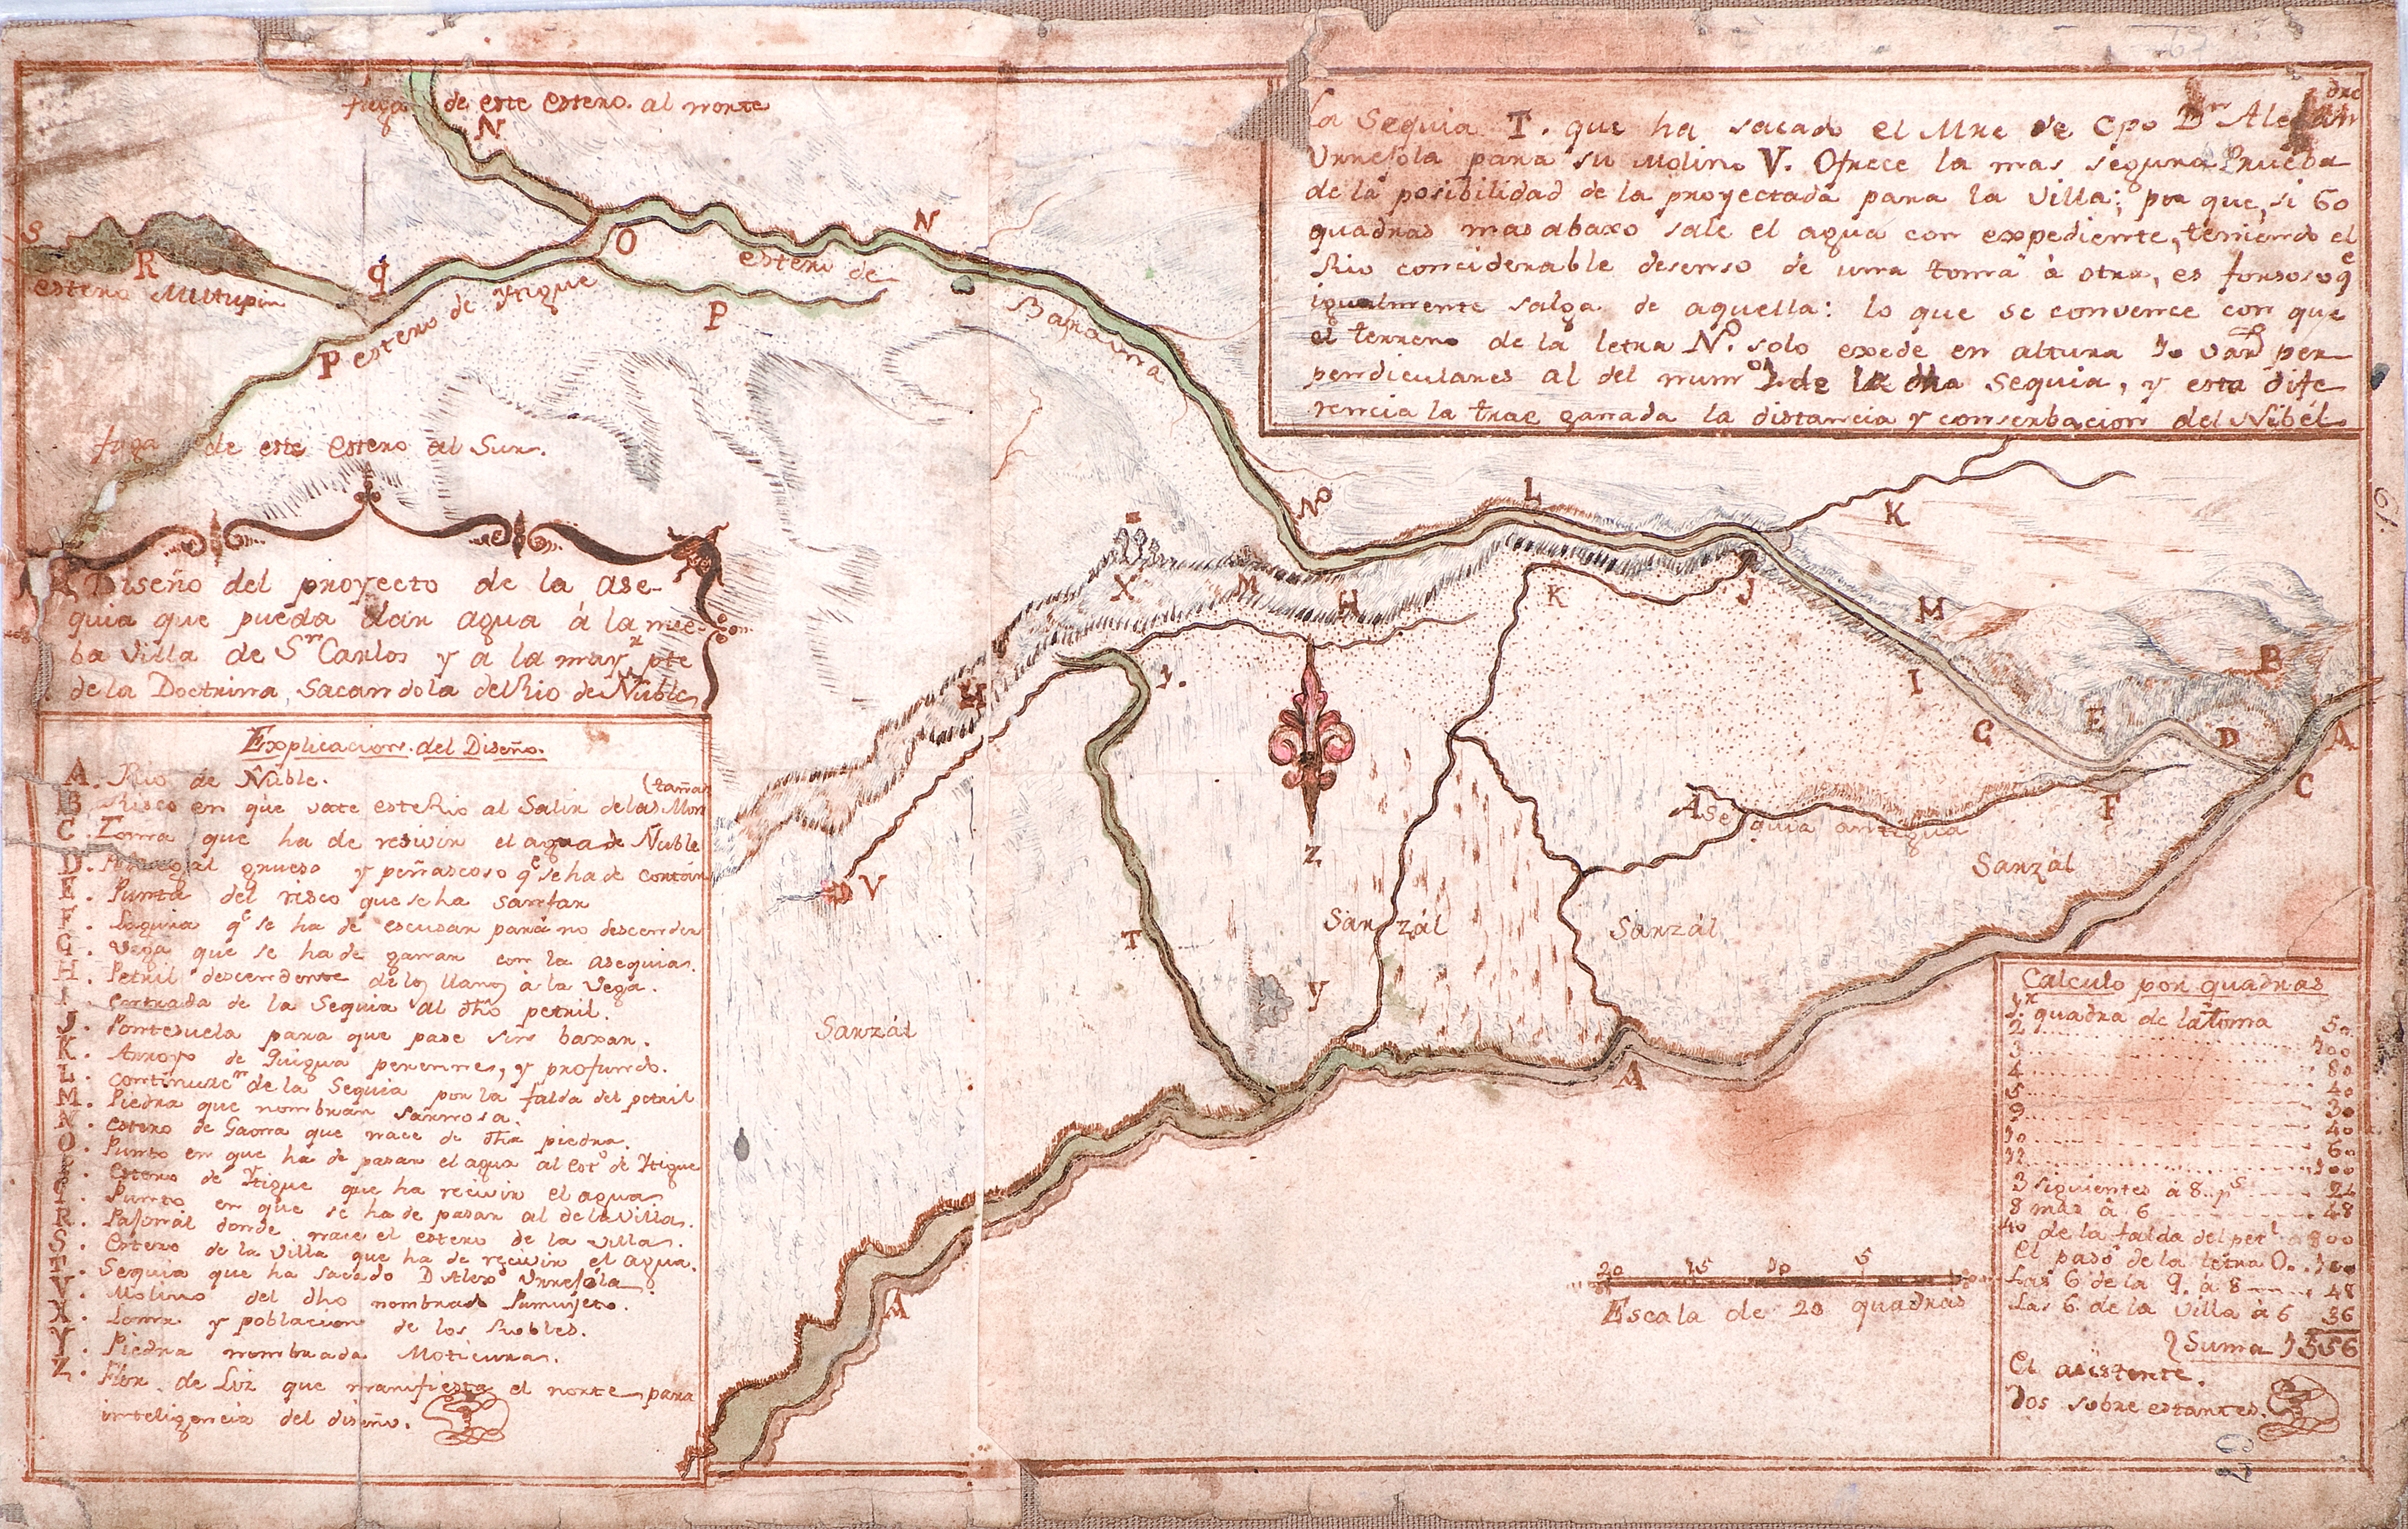 fuga de este estero al norte
N
La Sequia T. que ha sacado el Mre de Cpo Dn Alexandro
Urrejola para su Molino V. Ofrece la mas segura Prueba
de la posibilidad de la proyectada para la Villa; por que, si 60
quadras mas abaxo sale el agua con expediente, teniendo el
Rio conciderable desenso de una toma à otra, es forsoso qe
igualmente salga de aquella: lo que se convence con que
el terreno de la letra No. solo exede en altura 10 vars per-
pendiculares al del numo 1. de la dha Sequia, y esta dife
rencia la trae ganada la distancia y conserbacion del Nibél.
S
R
estero Millupin
q
O
N
estero de
Banaura
P
P
estero de Ytigue
fuga de este estero al Sur.
No
L
K
X
M
H
K
J
M
I
B
G
E
D
A
C
F
H
1.
Z
Asequia antigua
Sanzál
V
T
Sanzál
Sanzál
Y
Sanzál
A
A
Diseño del proyecto de la ase-
quia que pueda dar agua á la nue-
ba Villa de Sn Carlos y a la mayr pte
de la Doctrina, Sacandola del Rio de Ñuble
Explicacion del Diseño.
A. Rio de Ñuble.
B Risco en que vate este Rio al Salir de las Mon
(tañas
C. Toma que ha de resivir el agua de Ñuble
D. grueso y peñascoso qe se ha de cortar
E. Punta del risco que se ha santar
F. Sequia qe se ha de escusar para no descender
G. Vega que se ha de ganar con la asequia.
H. Petril descendente de los llanos à la Vega.
I. entrada de la Sequia al dho petril.
J. Pontesuela para que pase sin baxar.
K. Arroyo de Quigua perenne, y profundo.
L. continuacn de la Sequia por la falda del petril
M. Piedra que nombran Sannosa.
N. estero de Gaona que nace de dha piedra.
O. Punto en que ha de pasar el agua al esto de Ytigue
P. estero de Ytigue que ha recivir el agua
q. Punto en que se ha de pasar al de la Villa.
R. Pajonal donde nace el estero de la Villa.
S. Estero de la Villa que ha de recivir el agua.
T. Sequia que ha sacado D Alexo Urrejola
V. Molino del dho nombrado
X. Loma y poblacion de los Robles.
Y. Piedra nombrada Moticura.
Z. Flor de Liz que manifiesta el norte para
inteligencia del diseño.
Calculo por quadras
1.a quadra de la toma 50
2 100
3 80
4 40
5 30
9 40
10 60
12 100
3 siguientes à 8. ps 24
8 mas à 6 48
40 de la falda del petl 800
El paso de la letra O. 100
Las 6 de la q. à 8 48
Las 6 de la Villa à 6 36
Suma 1556
El asistente.
Dos sobre estantes.
20 15 10 5
Escala de 20 quadras